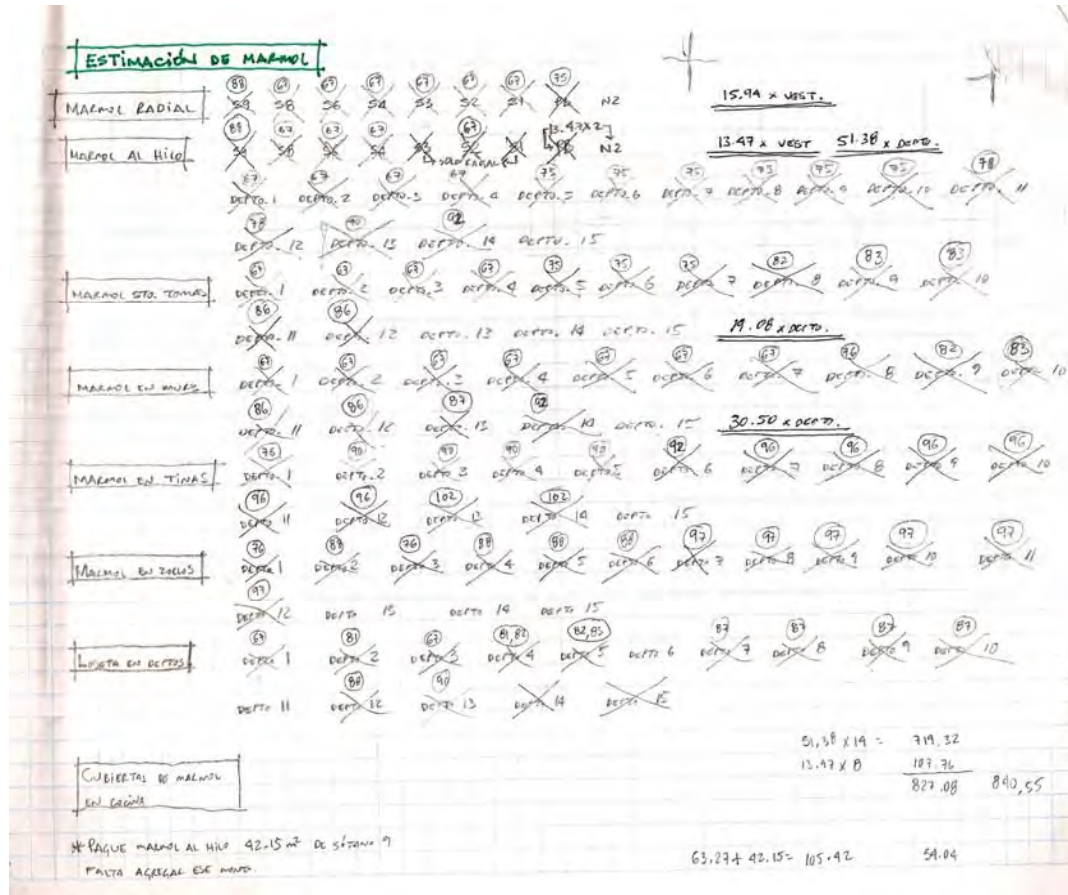 ESTIMACIÓN DE MARMOL
88 67 67 67 67 67 67 75
MARMOL RADIAL S9 S8 S6 S4 S3 S2 S1 N2 15.94 x VEST.
88 67 67 67 67 13.47x2
MARMOL AL HILO N2 13.47 x VEST 51.38 x DEPTO.
67 67 67 67 75 75 75 75 75 75 78
DEPTO. 1 DEPTO. 2 DEPTO. 3 DEPTO. 4 DEPTO. 5 DEPTO. 6 DEPTO. 7 DEPTO. 8 DEPTO. 9 DEPTO. 10 DEPTO. 11
78 90 92
DEPTO. 12 DEPTO. 13 DEPTO. 14 DEPTO. 15
67 67 67 67 75 75 75 82 83 83
MARMOL STO. TOMAS DEPTO. 1 DEPTO. 2 DEPTO. 3 DEPTO. 4 DEPTO. 5 DEPTO. 6 DEPTO. 7 DEPTO. 8 DEPTO. 9 DEPTO. 10
86 86
DEPTO. 11 DEPTO. 12 DEPTO. 13 DEPTO. 14 DEPTO. 15 19.08 x DEPTO.
67 67 67 67 67 67 67 76 82 83
MARMOL EN MURO DEPTO. 1 DEPTO. 2 DEPTO. 3 DEPTO. 4 DEPTO. 5 DEPTO. 6 DEPTO. 7 DEPTO. 8 DEPTO. 9 DEPTO. 10
86 86 87 92
DEPTO. 11 DEPTO. 12 DEPTO. 13 DEPTO. 14 DEPTO. 15 30.50 x DEPTO.
76 90 90 90 90 92 96 96 96 96
MARMOL EN TINAS DEPTO. 1 DEPTO. 2 DEPTO. 3 DEPTO. 4 DEPTO. 5 DEPTO. 6 DEPTO. 7 DEPTO. 8 DEPTO. 9 DEPTO. 10
96 96 102 102
DEPTO 11 DEPTO 12 DEPTO 13 DEPTO 14 DEPTO 15
76 88 76 88 88 88 97 97 97 97 97
MARMOL EN ZOCLOS DEPTO 1 DEPTO 2 DEPTO 3 DEPTO 4 DEPTO 5 DEPTO 6 DEPTO 7 DEPTO 8 DEPTO 9 DEPTO 10 DEPTO 11
97
DEPTO 12 DEPTO 13 DEPTO 14 DEPTO 15
67 81 67 81,82 82,83 87 87 87 87
LOSETA EN DEPTOS DEPTO 1 DEPTO 2 DEPTO 3 DEPTO 4 DEPTO 5 DEPTO 6 DEPTO 7 DEPTO 8 DEPTO 9 DEPTO 10
88 90
DEPTO 11 DEPTO 12 DEPTO 13 DEPTO 14 DEPTO 15
51,38 x 14 = 719,32
13.47 x 8 107.76
827.08 840,55
CUBIERTAS DE MARMOL
EN COCINA
* PAGUE MARMOL AL HILO 42.15 m² DE SÓTANO 9
FALTA AGREGAR ESE MONTO.
63.27 + 42.15 = 105.42 54.04